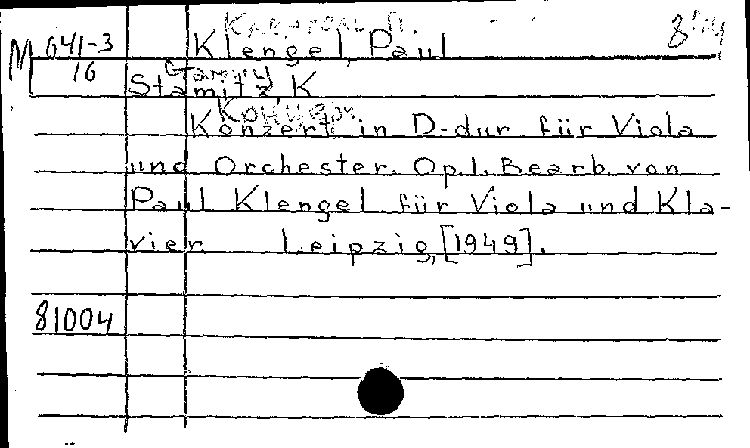 M 641-3
16
Klengel, Paul
Stamitz K
Konzert in D-dur für Viola
und Orchester. Op.1. Bearb. von
Paul Klengel für Viola und Kla-
vier Leipzig, [1949].
81004